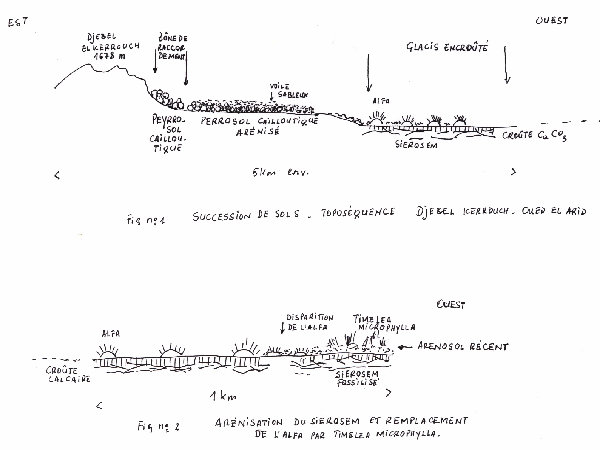 EST
OUEST
DJEBEL
EL KERROUCH
1678 m
ZÔNE DE
RACCOR
DEMENT
GLACIS ENCROÛTÉ
VOILE
SABLEUX
ALFA
PEYRO-
SOL
CAILLOU-
TIQUE
PERROSOL CAILLOUTIQUE
ARÉNISÉ
SIEROSEM
CROÛTE Ca CO3
5km env.
Fig no 1 SUCCESSION DE SOLS _ TOPOSÉQUENCE DJEBEL KERROUCH. OUED EL ARID
OUEST
ALFA
DISPARITION
DE L'ALFA
TIMELEA
MICROPHYLLA
ARENOSOL RÉCENT
CROÛTE
CALCAIRE
SIEROSEM
FOSSILISÉ
1 km
Fig no 2 ARÉNISATION DU SIEROSEM ET REMPLACEMENT
DE L'ALFA PAR TIMELEA MICROPHYLLA.